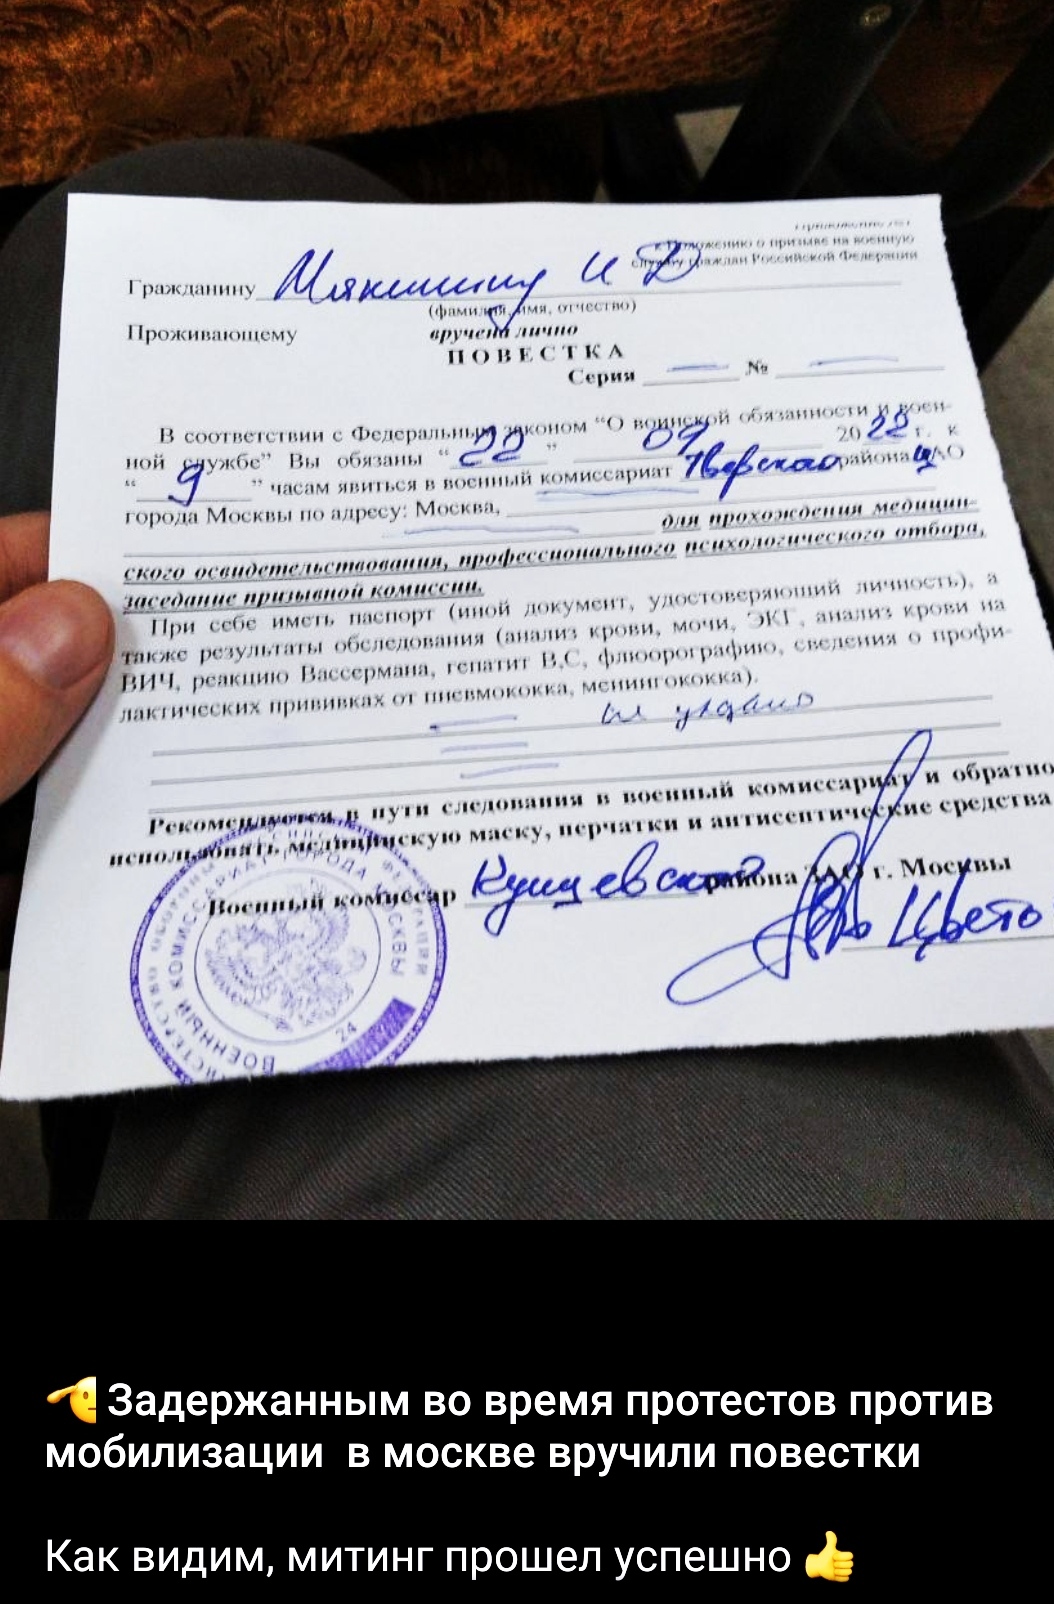 Приложение №1
к Положению о призыве на военную
службу граждан Российской Федерации
Гражданину Мякишину И Д
(фамилия, имя, отчество)
Проживающему вручена лично
ПОВЕСТКА
Серия — № —
В соответствии с Федеральным законом “О воинской обязанности и воен-
ной службе” Вы обязаны “ 22 ” 09 2022 г. к
“ 9 ” часам явиться в военный комиссариат Тверского района ЦАО
города Москвы по адресу: Москва,
для прохождения медицин-
ского освидетельствования, профессионального психологического отбора,
заседание призывной комиссии.
При себе иметь паспорт (иной документ, удостоверяющий личность), а
также результаты обследования (анализ крови, мочи, ЭКГ, анализ крови на
ВИЧ, реакцию Вассермана, гепатит В,С, флюорографию, сведения о профи-
лактических прививках от пневмококка, менингококка).
Рекомендуется в пути следования в военный комиссариат и обратно
использовать медицинскую маску, перчатки и антисептические средства
Военный комиссар Кунцевского района ЗАО г. Москвы
ВОЕННЫЙ КОМИССАРИАТ ГОРОДА МОСКВЫ
24
Задержанным во время протестов против
мобилизации в москве вручили повестки
Как видим, митинг прошел успешно 👍